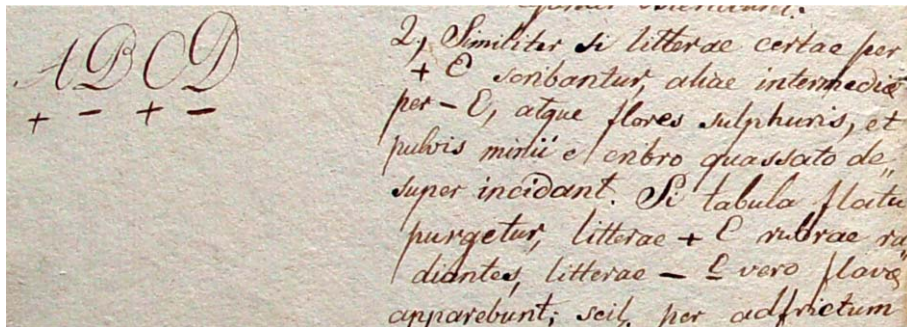 A B C D
+ - + -
2., Similiter si litterae certae per
+ E scribantur, aliae intermediae
per - E, atque flores sulphuris, et
pulvis minii e cribro quassato de„
super incidant. Si tabula flatu
purgetur, litterae + E rubrae ra„
diantes, litterae - E vero flavae
apparebunt; scil. per adfrictum